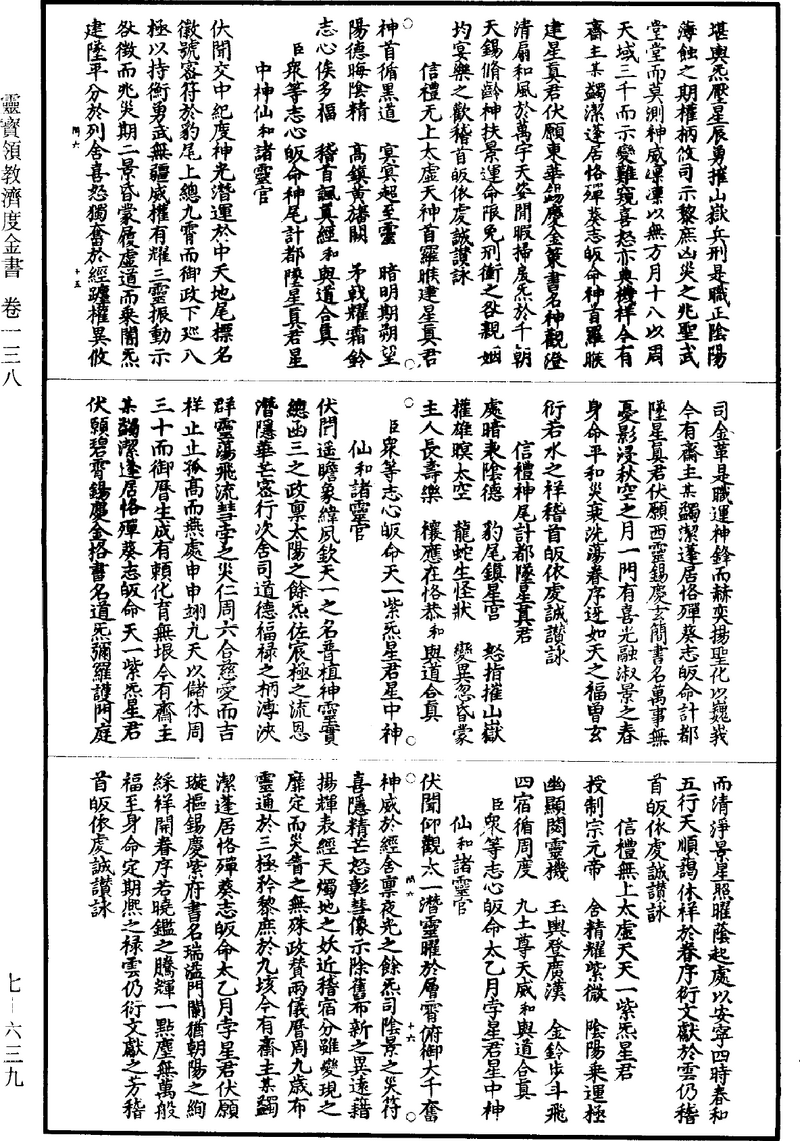 靈寶領教濟度金書 卷一三八
七—六三九
堪輿炁壓星辰勇摧山嶽兵刑是職正陰陽
薄蝕之期權柄攸司示黎庶凶災之兆聖武
堂堂而莫測神威凛凛以無方月十八以周
天域三千而示變難窺喜怒亦典機祥今有
齋主某蠲潔蓬居恪殫葵志皈命神首羅睺
建星真君伏願東華錫慶金籙書名神觀澄
清扇和風於萬宇天姿閒暇掃虔炁於千朝
天錫脩齡神扶景運命限免刑衝之咎親姻
均宴樂之歡稽首皈依虔誠讃詠
信禮无上太虛天神首羅睺建星真君
神首循黑道 冥冥起至靈 暗明期朔望
陽德晦陰精 高鎮黄旛闕 矛戟耀霜鈴
志心俟多福 稽首諷真經和與道合真
臣衆等志心皈命神尾計都墜星真君星
中神仙和諸靈官
伏聞交中紀度神光潛運於中天地尾標名
徽號密符於豹尾上總九霄而御政下巡八
極以持衡勇武無疆威權有耀三靈振動示
咎徵而兆災期二景昏蒙履虛道而乘闇炁
建墜平分於列舍喜怒獨奮於經躔權異攸
司金革是職運神鋒而赫奕揚聖化以巍峩
今有齋主某蠲潔蓬居恪殫葵志皈命計都
墜星真君伏願西靈錫慶玄簡書名萬事無
憂影浸秋空之月一門有喜光融淑景之春
身命平和災衰洗蕩眷序迓如天之福曾玄
衍若水之祥稽首皈依虔誠讃詠
信禮神尾計都墜星真君
處暗表陰德 豹尾鎮星宫 怒指摧山嶽
權雄瞑太空 龍蛇生怪狀 變異忽昏蒙
主人長壽樂 禳應在恪恭和與道合真
臣衆等志心皈命天一紫炁星君星中神
仙和諸靈官
伏聞遥瞻象緯夙欽天一之名普植神靈實
總函三之政禀太陽之餘炁佐宸極之流恩
潛隱華芒密行次舍司道德福禄之柄溥浹
群靈蕩飛流彗孛之災仁周六合慈愛而吉
祥止止孤高而燕處申申翊九天以儲休周
三十而御曆生成有賴化育無垠今有齋主
某蠲潔蓬居恪殫葵志皈命天一紫炁星君
伏願碧霄錫慶金格書名道炁彌羅護門庭
而清淨景星照曜蔭起處以安寧四時春和
五行天順藹休祥於眷序衍文獻於雲仍稽
首皈依虔誠讃詠
信禮無上太虛天天一紫炁星君
授制宗元帝 舍精耀紫微 陰陽乘運極
幽顯闊靈機 玉輿登廣漢 金鈴步斗飛
四宿循周度 九土尊天威和與道合真
臣衆等志心皈命太乙月孛星君星中神
仙和諸靈官
伏聞仰觀太一潛靈曜於層霄俯御大千奮
神威於經舍禀夜光之餘炁司陰景之災符
喜隱精芒怒彰彗像示除舊布新之異遠藉
揚輝表經天燭地之妖近稽宿分雖變現之
靡定而災眚之無殊政賛兩儀曆周九歲布
靈通於三極矜黎庶於九垓今有齋主某蠲
潔蓬居恪殫葵志皈命太乙月孛星君伏願
璇樞錫慶紫府書名瑞溢門闌猶朝陽之絢
綵祥開眷序若曉鑑之騰輝一點塵無萬般
福至身命定期熙之禄雲仍衍文獻之芳稽
首皈依虔誠讃詠